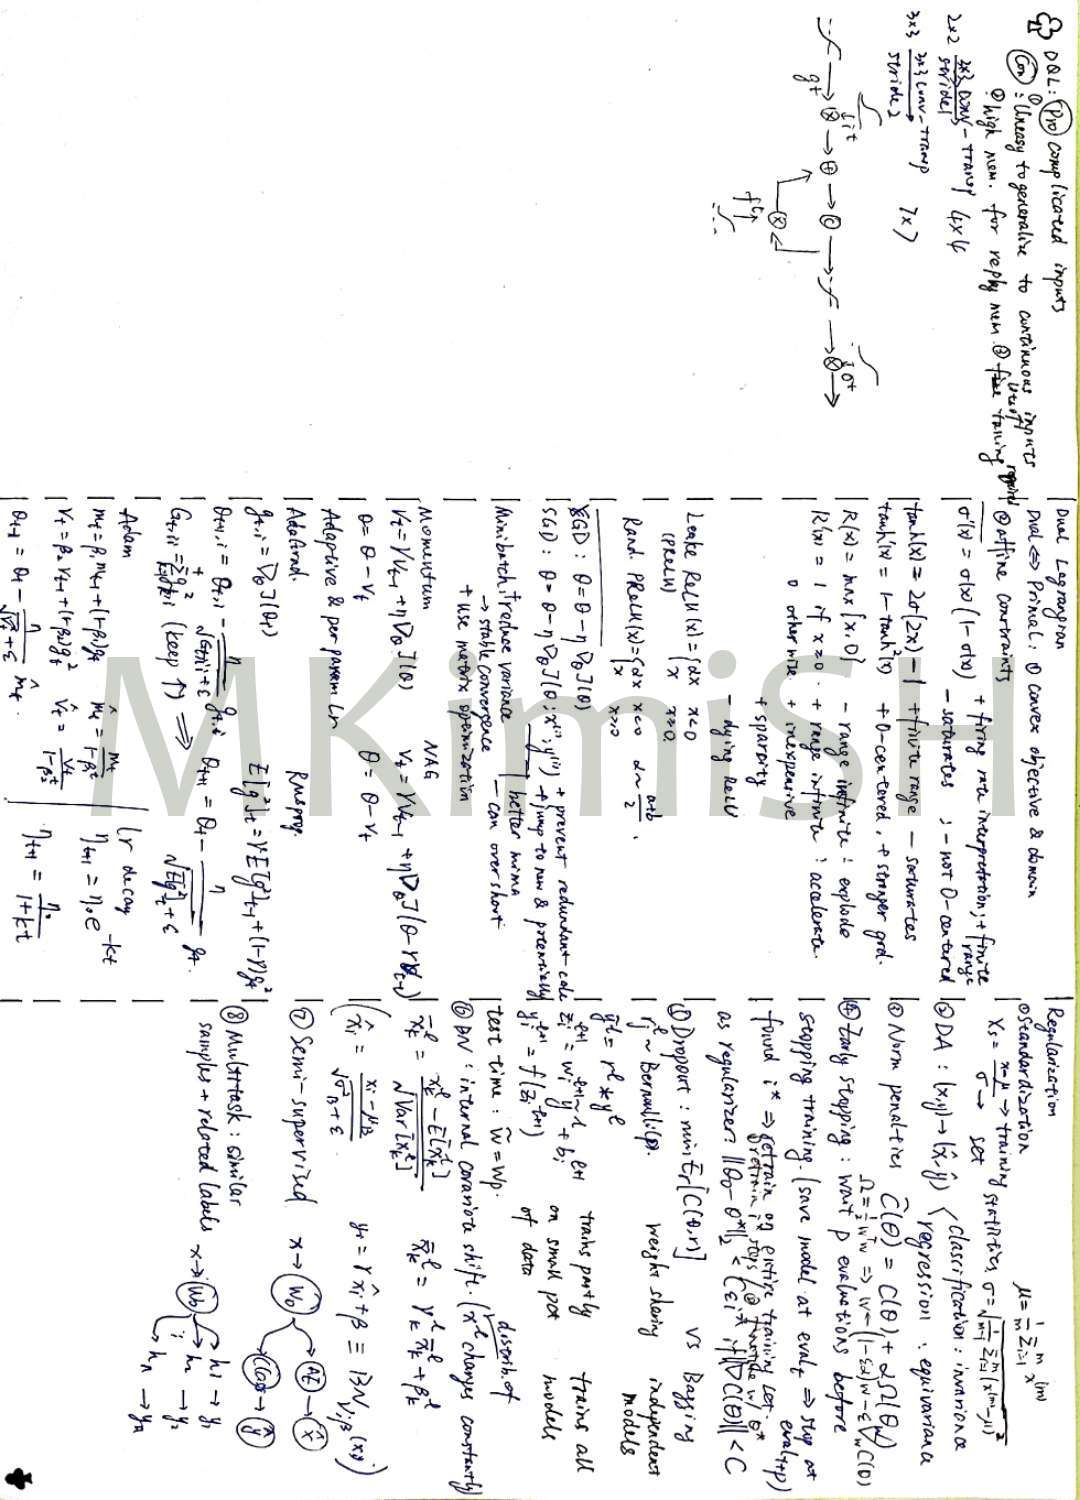 DQL: Pro complicated inputs
Con: ① Uneasy to generalize to continuous inputs
② high mem. for reply mem. ③ lots of fine tuning required
2x2 3x3 conv-transp stride1 4x4
3x3 3x3 conv-transp stride2 7x7
it ot
gt
ft
Dual Lagrangian
Dual ⟺ Primal: ① convex objective & domain
② affine constraints
σ'(x) = σ(x)(1-σ(x)) + firing rate interpretation; + finite range
- saturates ; - not 0-centered
tanh(x) = 2σ(2x) - 1 + finite range - saturates
tanh'(x) = 1 - tanh²(x) + 0-centered, + stronger grd.
R(x) = max{x, 0} - range infinite: explode
R'(x) = 1 if x≥0 + range infinite: accelerate.
0 otherwise + inexpensive
+ sparsity
- dying ReLU
Leake ReLU(x) = {αx x<0
(PReLU) x x≥0.
Rand. PReLU(x) = {αx x<0 α~ a+b/2.
x x≥0
GD: θ = θ - η∇θJ(θ)
SGD: θ = θ - η∇θJ(θ; x⁽ⁱ⁾; y⁽ⁱ⁾) + prevent redundant calc
+ jump to new & potentially
better mima
- can overshort
Minibatch: + reduce variance
→ stable convergence
+ use matrix optimization
Momentum NAG
Vt = γVt-1 + η∇θJ(θ) Vt = γVt-1 + η∇θJ(θ - γVt-1)
θ = θ - Vt θ = θ - Vt
Adaptive & per param Lr
AdaGrad. RMSprop.
gt,i = ∇θJ(θt) E[g²]t = γE[g²]t-1 + (1-γ)gt²
θt+1,i = θt,i - η/√(Gt,ii+ε) gt,i θt+1 = θt - η/√(E[g²]t+ε) gt.
Gt,ii = Σ g²k,i (keep ↑) ⟹
Adam lr decay
mt = β₁mt-1 + (1-β₁)gt m̂t = mt/(1-β₁ᵗ) ηt+1 = η₀e^-kt
Vt = β₂Vt-1 + (1-β₂)gt² V̂t = Vt/(1-β₂ᵗ)
θt+1 = θt - η/(√V̂t+ε) m̂t. ηt+1 = η₀/(1+kt)
Regularization
① Standardization μ = 1/m Σᵢ₌₁ᵐ x⁽ᵐ⁾
Xs = (x-μ)/σ → training set statistics σ = √(1/(m-1) Σᵢ₌₁ᵐ (x⁽ᵐ⁾-μ)²)
② DA: (x,y) → (x̂,ŷ) < classification: invariance
regression: equivariance
③ Norm penalties C̃(θ) = C(θ) + αΩ(θw)
Ω = ½wᵀw ⇒ w ← (1-εα)w - ε∇wC(θ)
④ Early stopping: wait p evaluations before
stopping training. (save model at evalt ⇒ stop at evalt+p)
found i* ⇒ retrain on entire training set.
① retrain i* steps / ② finetune w/ θ*
as regularizer: ||θ₀-θ*||₂ < Cεi* if ||∇C(θ)|| < C
⑤ Dropout: min Er[C(θ,r)] vs Bagging
rjˡ ~ Bernoulli(p). weight sharing independent models
ỹˡ = rˡ * yˡ
ziˡ⁺¹ = wiˡ⁺¹ ỹˡ + biˡ⁺¹ trains partly on small pct of data trains all models
yiˡ⁺¹ = f(ziˡ⁺¹)
test time: w̃ = wp.
⑥ BN: internal covariate shift. (distrib. of xˡ changes constantly)
x̄kˡ = (xkˡ - E[xkˡ])/√Var[xkˡ] x̄kˡ = γkˡ x̄kˡ + βkˡ
(x̂i = (xi-μB)/√(σ²B+ε) yi = γx̂i + β ≡ BNγ;β(xi))
⑦ Semi-supervised x → W₀ → AE → x̂
Class → ŷ
⑧ Multitask: similar
samples + related labels x → W₀ → h₁ → y₁
h₂ → y₂
hn → yn
MKimiSH